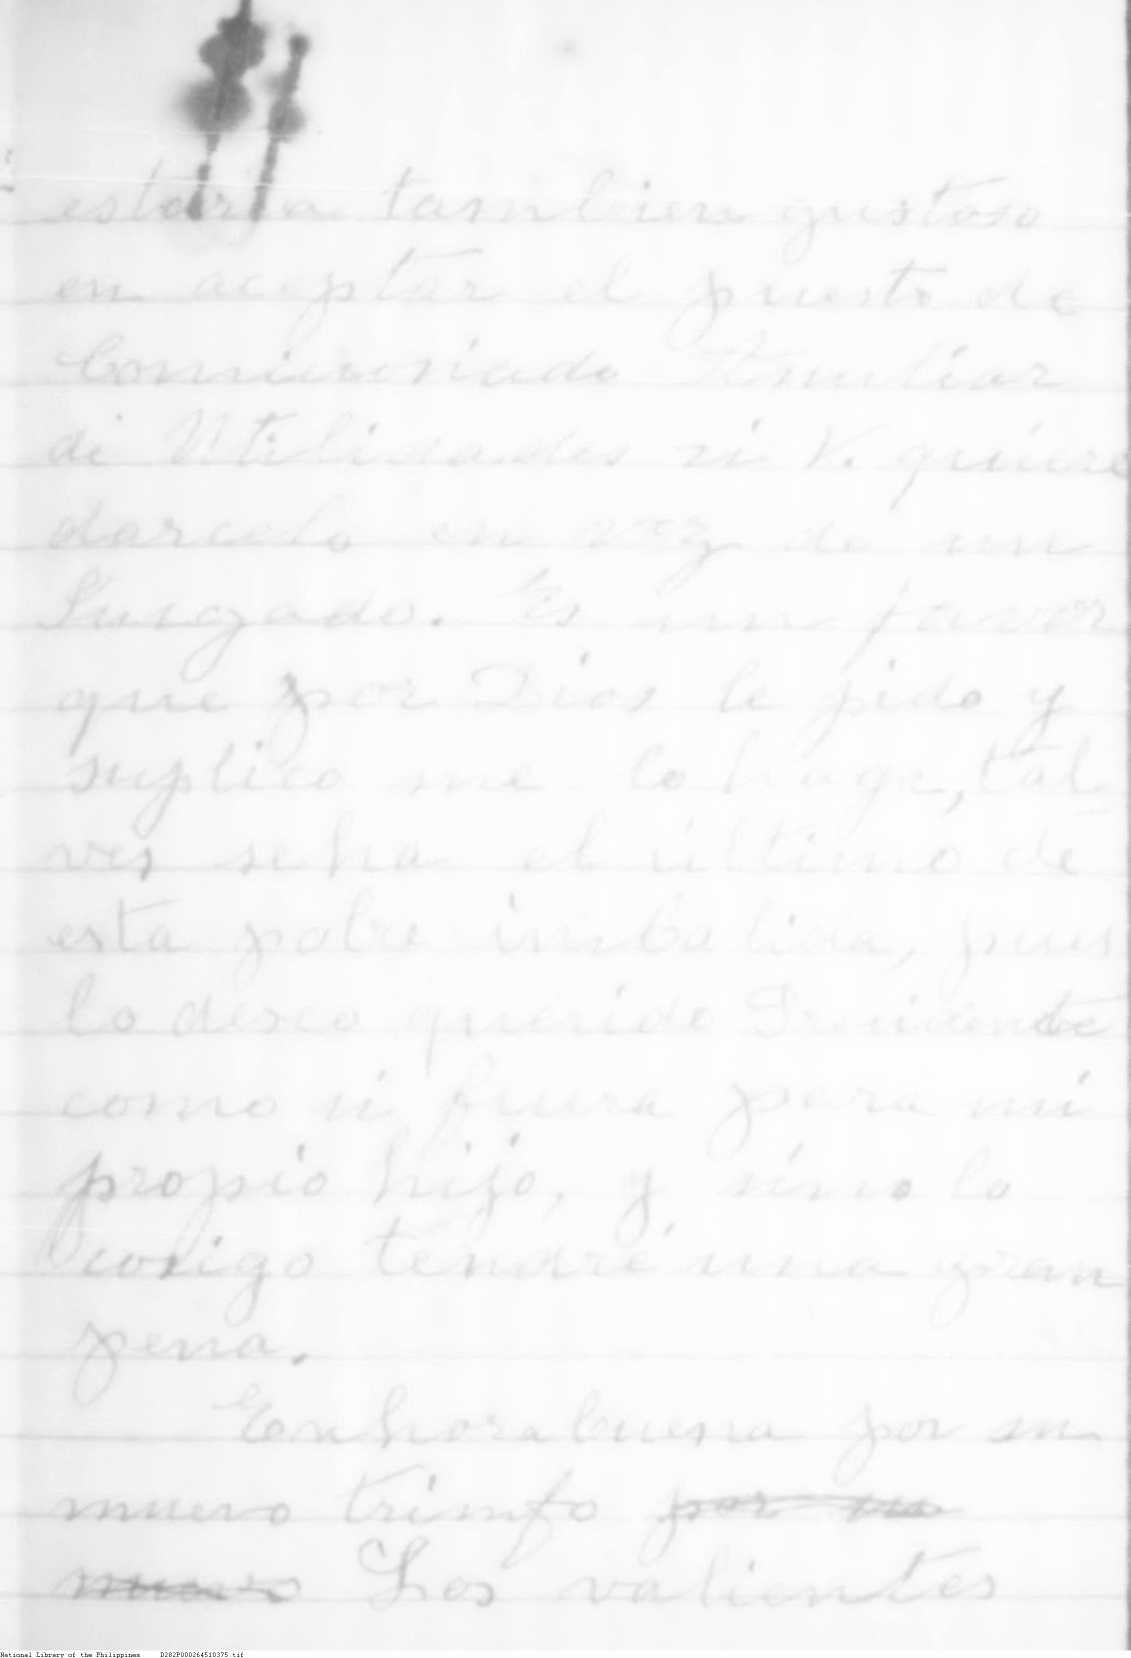 estaria tambien gustoso
en aceptar el puesto de
Comicionado Auxiliar
de Utilidades si V. quiere
darcelo en vez de un
Jusgado. Es un favor
que por Dios le pido y
suplico me lo haga, tal
ves seha el último de
esta pobre imbalida, pues
lo deseo querido Presidente
como si fuera para mi
propio hijo, y sino lo
consigo tendré una gran
pena.
Enhorabuena por su
nuevo trinfo por su
nuevo Los valientes
National Library of the Philippines D282P000264510375.tif